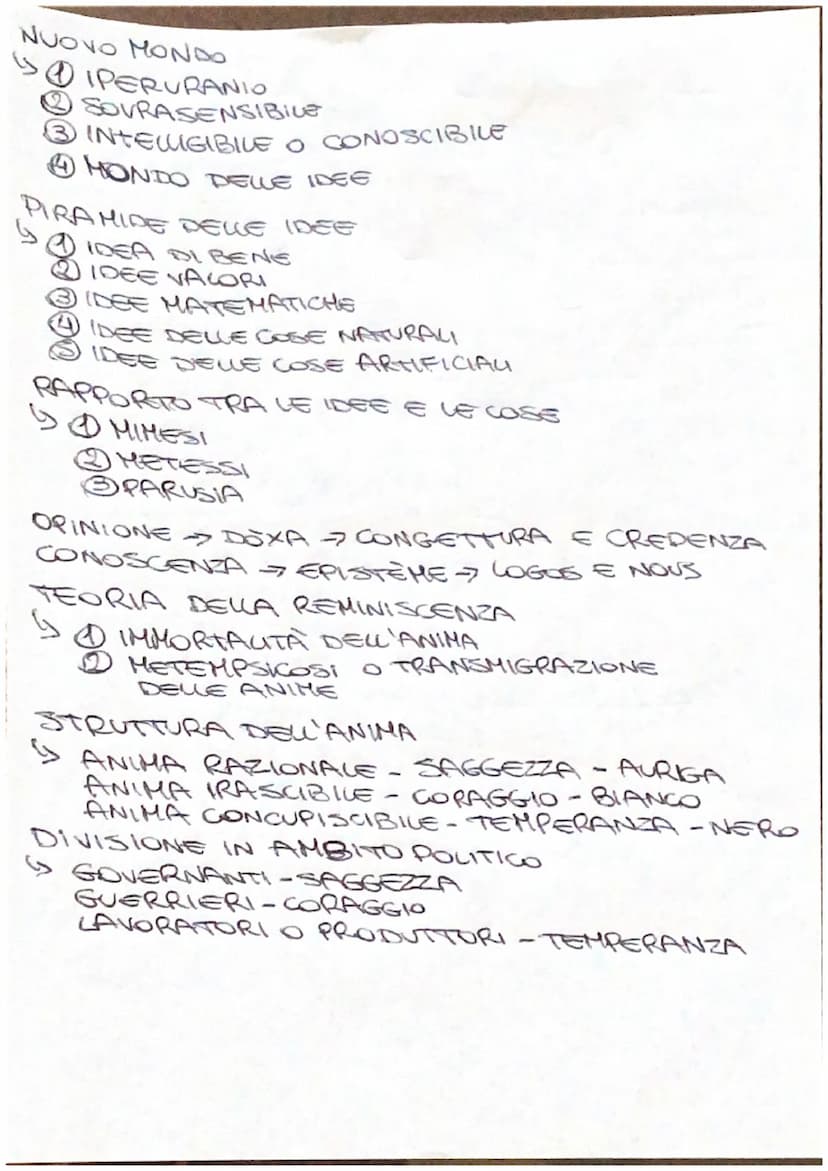 NUOVO MONDO
↳ ① IPERURANIO
② SOVRASENSIBILE
③ INTELLIGIBILE O CONOSCIBILE
④ MONDO DELLE IDEE
PIRAMIDE DELLE IDEE
↳ ① IDEA DI BENE
② IDEE VALORI
③ IDEE MATEMATICHE
④ IDEE DELLE COSE NATURALI
⑤ IDEE DELLE COSE ARTIFICIALI
RAPPORTO TRA LE IDEE E LE COSE
↳ ① MIMESI
② METESSI
③ PARUSIA
OPINIONE → DÓXA → CONGETTURA E CREDENZA
CONOSCENZA → EPISTÈME → LOGOS E NOUS
TEORIA DELLA REMINISCENZA
↳ ① IMMORTALITÀ DELL'ANIMA
② METEMPSICOSI O TRANSMIGRAZIONE
DELLE ANIME
STRUTTURA DELL'ANIMA
↳ ANIMA RAZIONALE - SAGGEZZA - AURIGA
ANIMA IRASCIBILE - CORAGGIO - BIANCO
ANIMA CONCUPISCIBILE - TEMPERANZA - NERO
DIVISIONE IN AMBITO POLITICO
↳ GOVERNANTI - SAGGEZZA
GUERRIERI - CORAGGIO
LAVORATORI O PRODUTTORI - TEMPERANZA